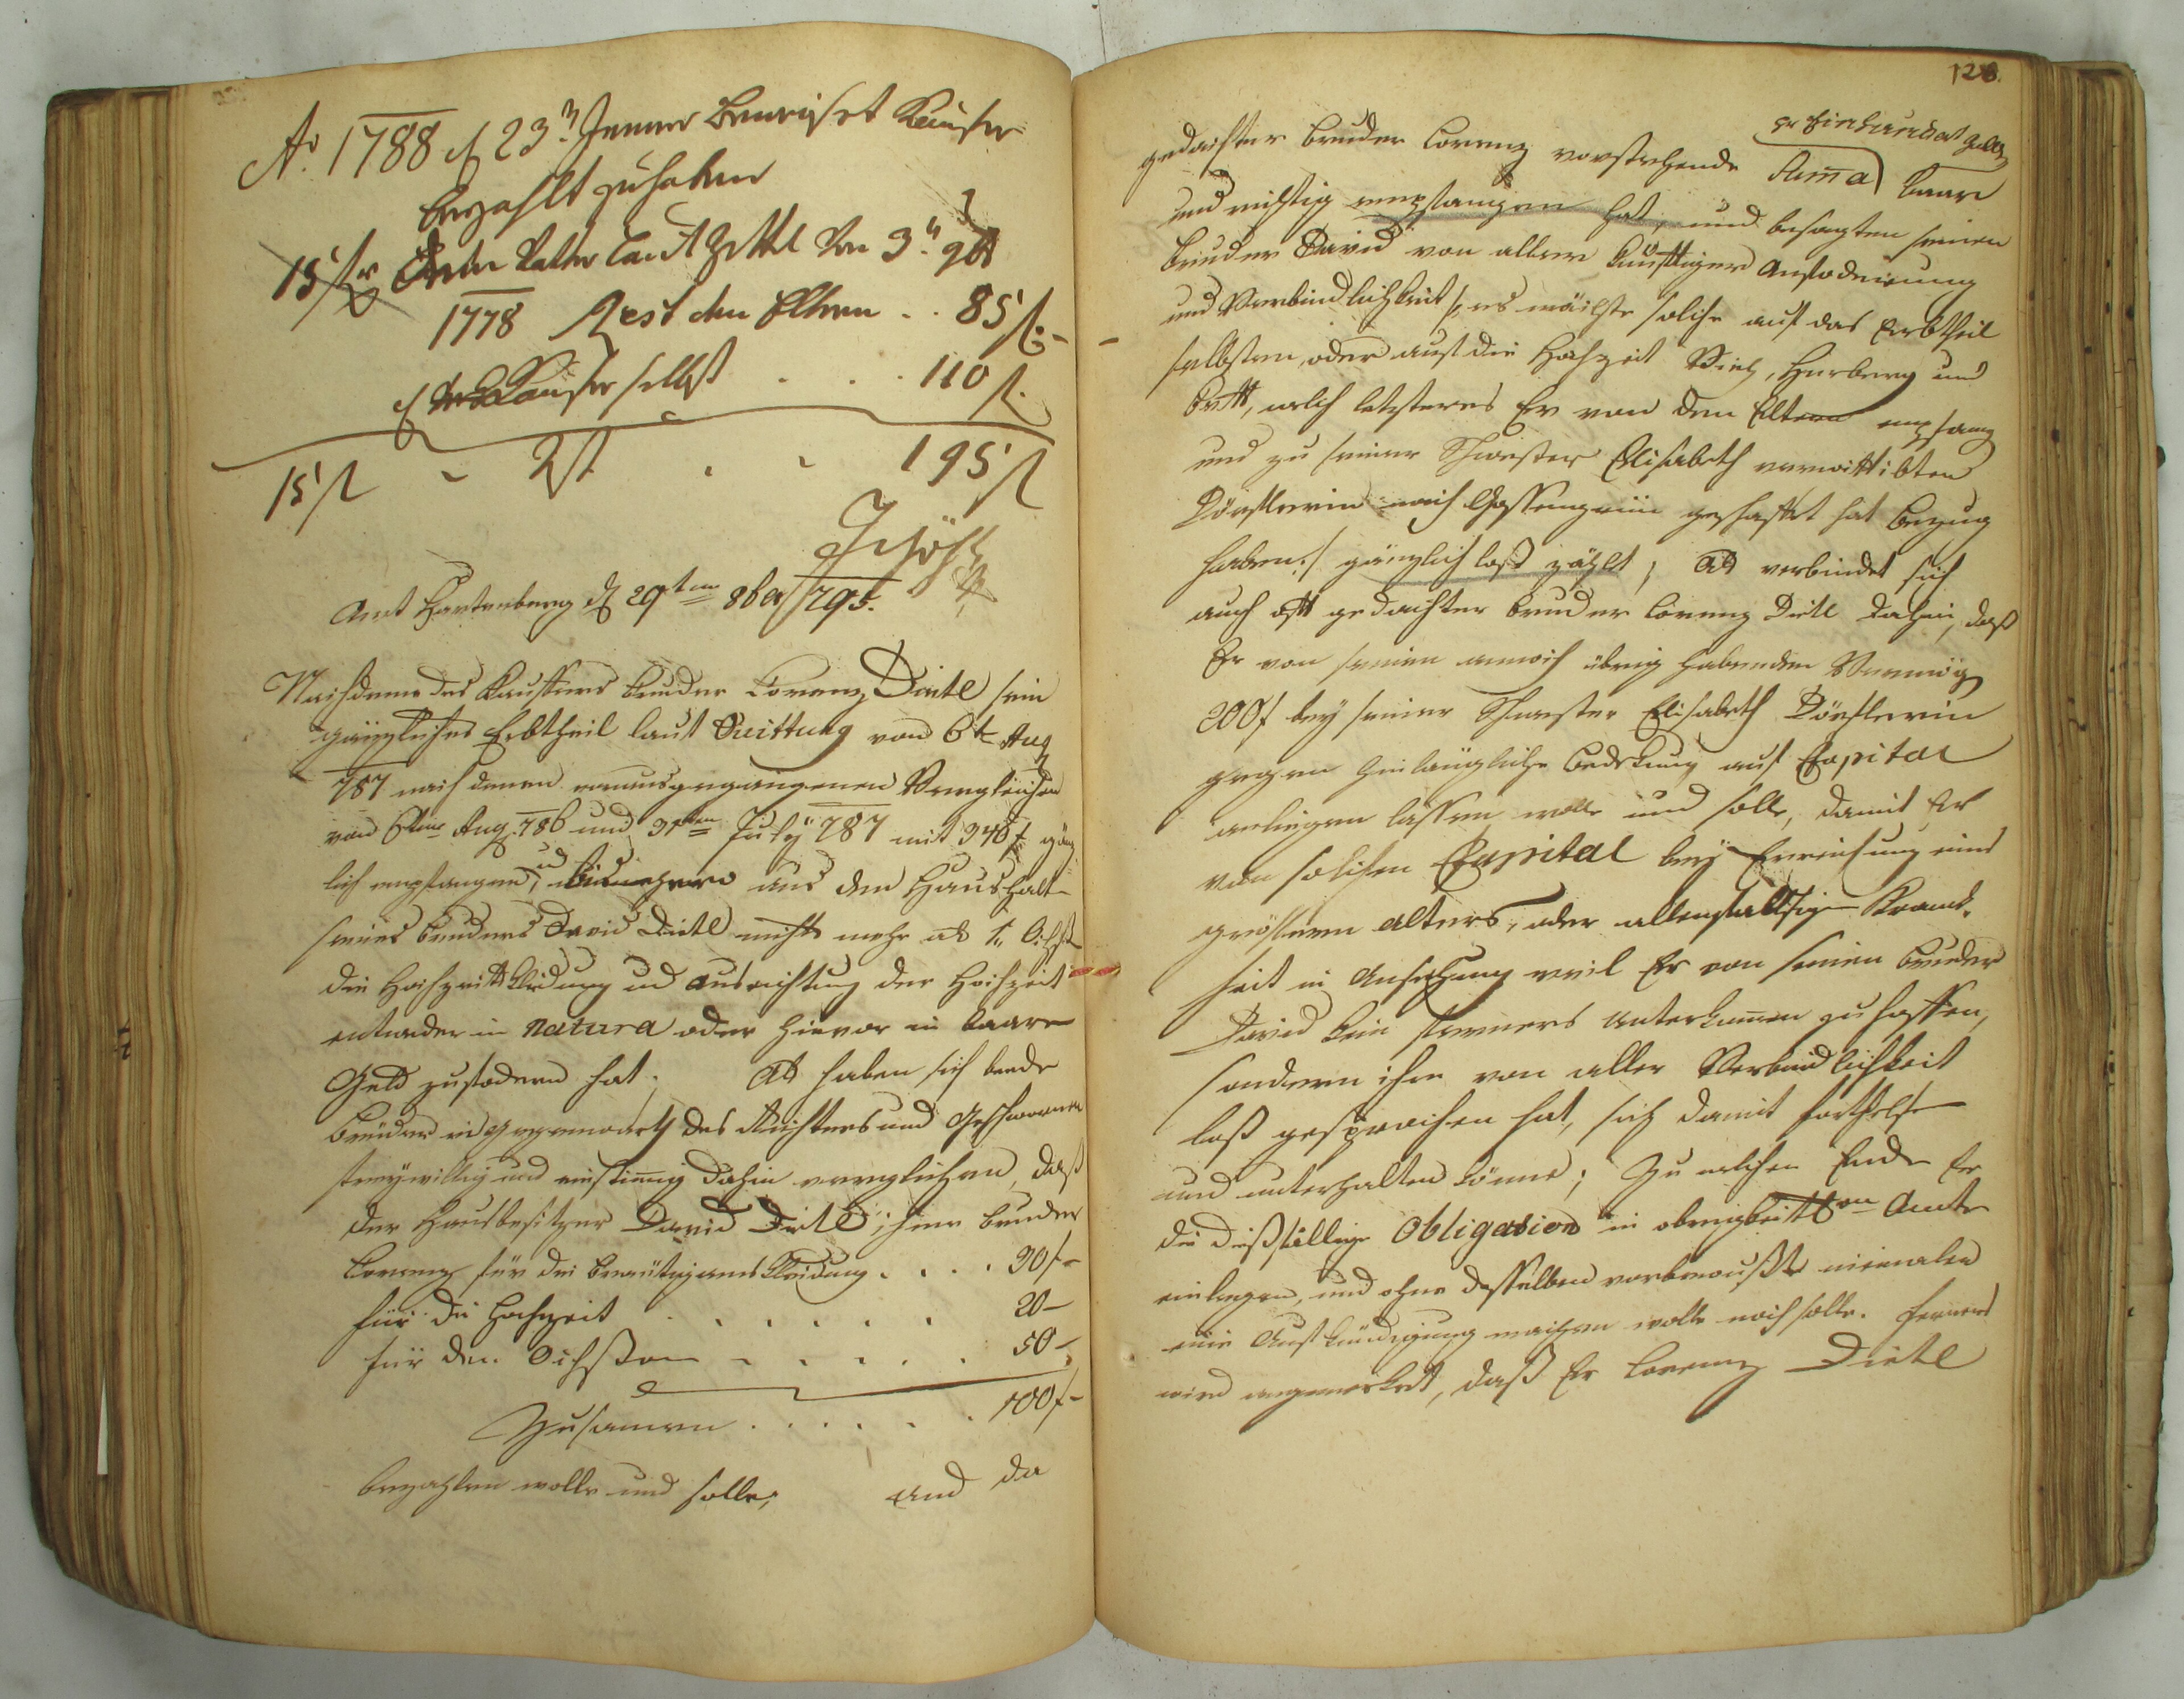 Ao 1788 d 23n Jenner beweiset Kaufer
bezahlt zu haben
15 f Vatter laut Zettl 3n
1778 Rest den Eltern . . 85 f. –
d Kaufer selbst . . . 110 f.
15 f – 2 f . – 195 f
Amt Hartenberg d 29ten 8br 795.
Nachdeme des Kauffers bruder Lorenz Dietl sein
gänzliches Erbtheil laut Quittung von 6te Aug
787 nach denen vorausgegangenen Vergleichen
von 6ten Aug. 786 und 31ten July 787 mit 346 f gänz
lich empfangen, und aus den Haushalt
seines bruders David Dietl nichts mehr als 1. Ochsen
die Hochzeitkleidung und ausrichtung der Hochzeit
entweder in natura oder hievor in baare
Geld zufodern hat; Als haben sich beede
brüder in gegenwart des Richters und Geschwornen
freywillig und einstimig dahin verglichen, daß
der Hausbesitzer David Dietl, seine bruder
Lorenz für die bräutigams Kleidung . . . . 30 f –
für die Hochzeit . . . . . . 20 –
für den Ochsen . . . . . 50 –
Zusamen . . . . . . 100 f –
bezahlen wolle und solle; und da
128.
gedachter bruder Lorenz vorstehende Suma baar
pr Einhundert gulden
und richtig empfangen hat, und besagten seinen
bruder David von aller künftigen Anfoderung
und Verbindlichkeit /: es möchte solche auf das Erbtheil
selbsten, oder auf die Hochzeit Vieh, Herberg und
bett, welch letzteres Er von den Eltern empfang
und zu seiner Schwester Elisabeth verwittibten
Dörflerin nach Gossengrün geschafft hat bezug
haben :/ gänzlich loß zählt; Als verbindet sich
auch oft gedachter bruder Lorenz Dietl dahin, daß
Er von seinen annoch übrig habenden Vermög
200 f bey seiner Schwester Elisabeth Dörflerin
gegen hinlängliche bedekung auf Capital
anliegen lassen wolle und solle, damit Er
von solchen Capital bey Erreichung eines
größern alters, oder allenfalsiger Krank-
heit in Ansehung weil Er von seinen bruder
David kein ferneres unterkumen zu hoffen,
sondern ihn von aller Verbindlichkeit
loß gesprochen hat, sich damit forthelfen
und unterhalten könne; Zu welchen Ende Er
die dießfällige Obligation in obrigkeitln Amte
einlegen, und ohne desselben vorbewußt niemalen
eine Aufkündigung machen wolle noch solle. Ferners
wird angemerket, daß Er Lorenz Dietl